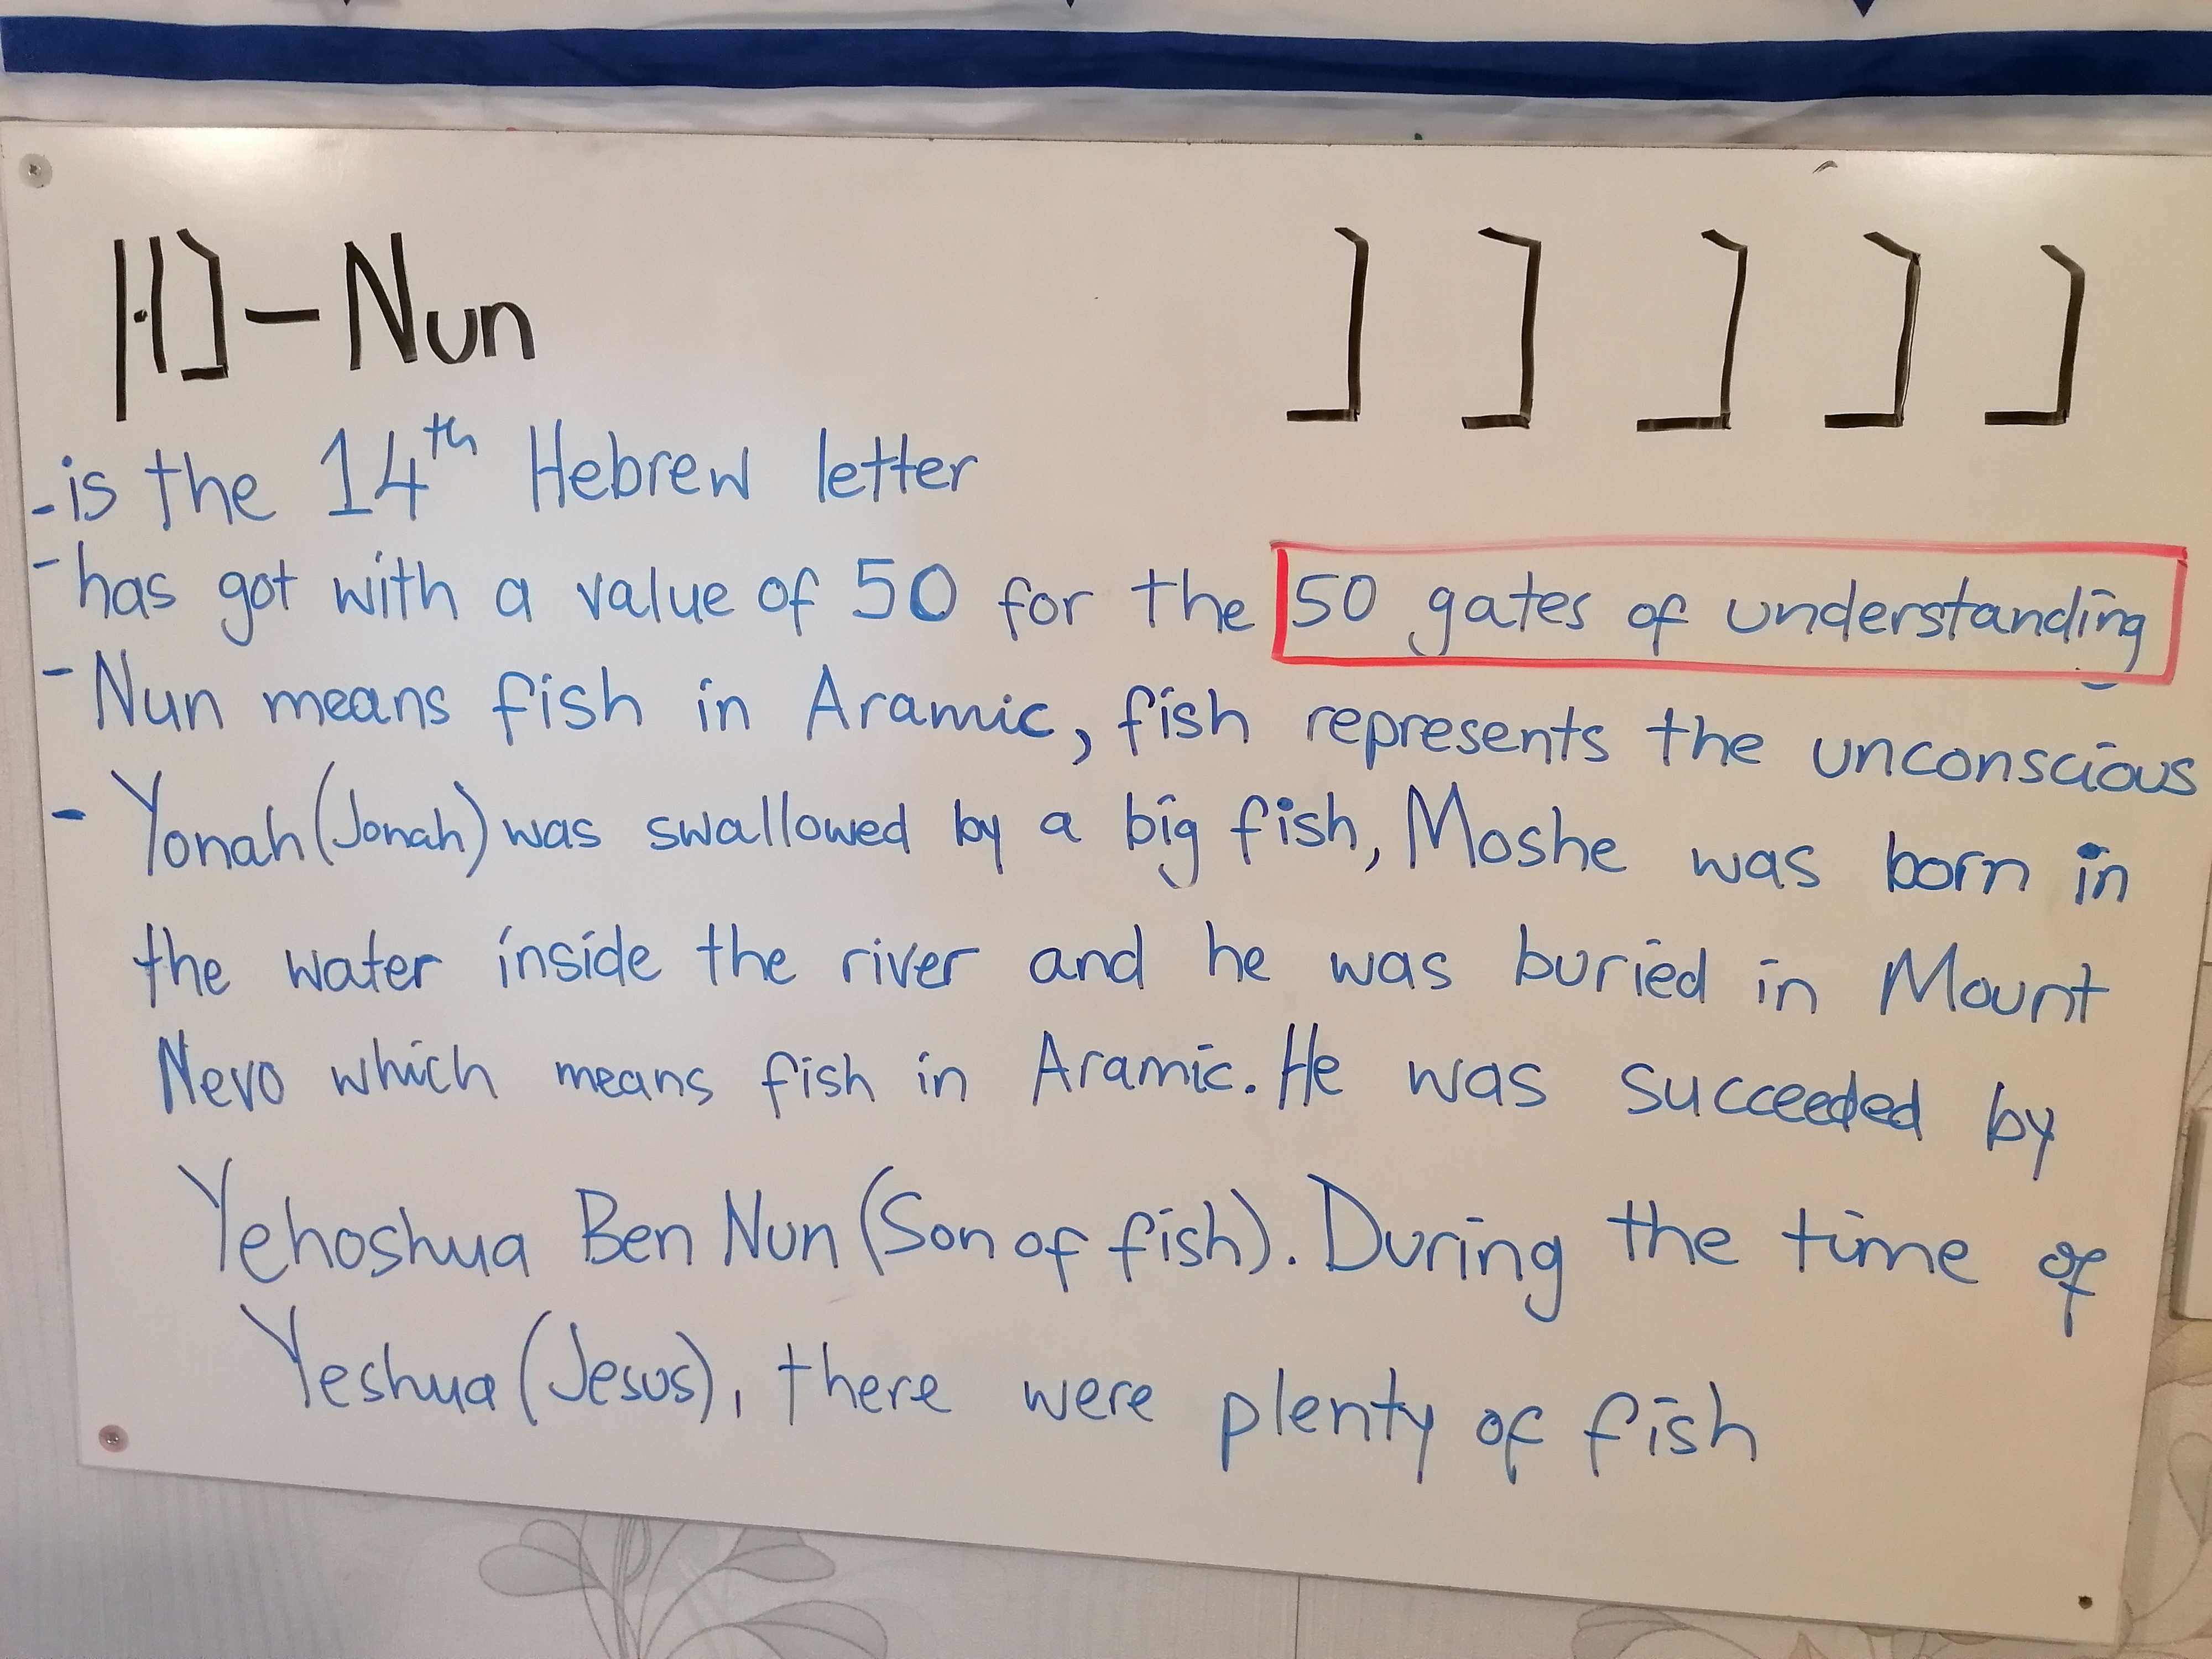 נוּן - Nun נ נ נ נ נ
- is the 14th Hebrew letter
- has got with a value of 50 for the 50 gates of understanding
- Nun means fish in Aramic, fish represents the unconscious
- Yonah (Jonah) was swallowed by a big fish, Moshe was born in
the water inside the river and he was buried in Mount
Nevo which means fish in Aramic. He was succeeded by
Yehoshua Ben Nun (Son of fish). During the time of
Yeshua (Jesus), there were plenty of fish